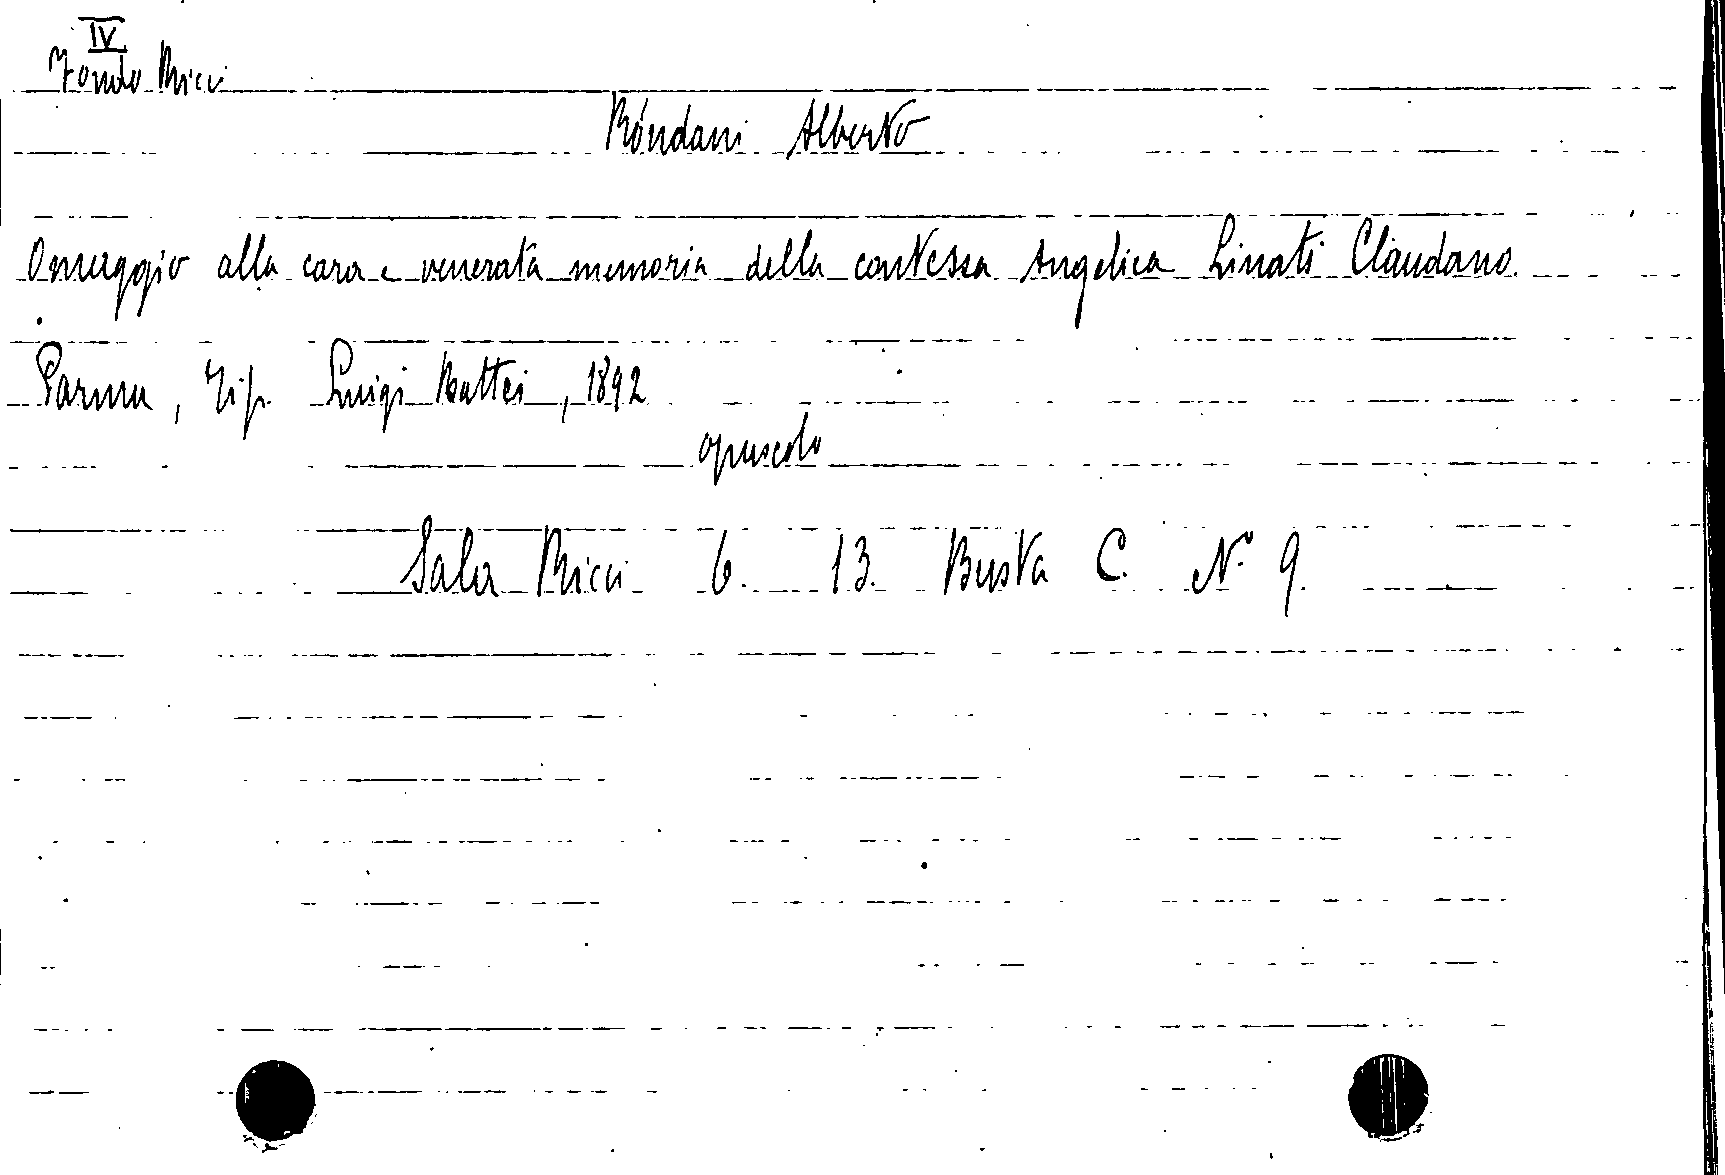 IV
Fondo Ricci
Róndani Alberto
Omaggio alla cara e venerata memoria della contessa Angelica Linati Claudano.
Parma, Tip. Luigi Battei, 1892
opuscolo
Sala Ricci 6. 13. Busta C. N° 9.